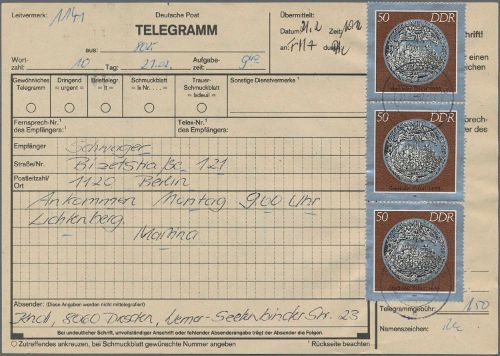 Leitvermerk: 1141
Deutsche Post
TELEGRAMM
aus: 805
Übermittelt:
Datum: 21.2 Zeit:
an: durch:
Wortzahl: 10 Tag: 21.02. Aufgabezeit: 9
Gewöhnliches Telegramm
Dringend = urgent =
Brieftelegr. = lt =
Schmuckblatt = lx Nr. ... =
Trauer-Schmuckblatt = lxdeuil =
Sonstige Dienstvermerke¹
Fernsprech-Nr.¹ des Empfängers:
Telex-Nr.¹ des Empfängers:
Empfänger Schwager
Straße/Nr. Bizetstraße 121
Postleitzahl/Ort 1120 Berlin
Ankommen Montag 9.00 Uhr
Lichtenberg.
Marina
Absender: (Diese Angaben werden nicht mittelegrafiert)
8060 Dresden, Werner-Seelenbinder-Str. 23
Bei undeutlicher Schrift, unvollständiger Anschrift oder fehlender Absenderangabe trägt der Absender die Folgen.
Zutreffendes ankreuzen, bei Schmuckblatt gewünschte Nummer angeben
50 DDR
50 DDR
50 DDR
Schrift!
für einen
Telegrammgebühr: 1,50
Namenszeichen: